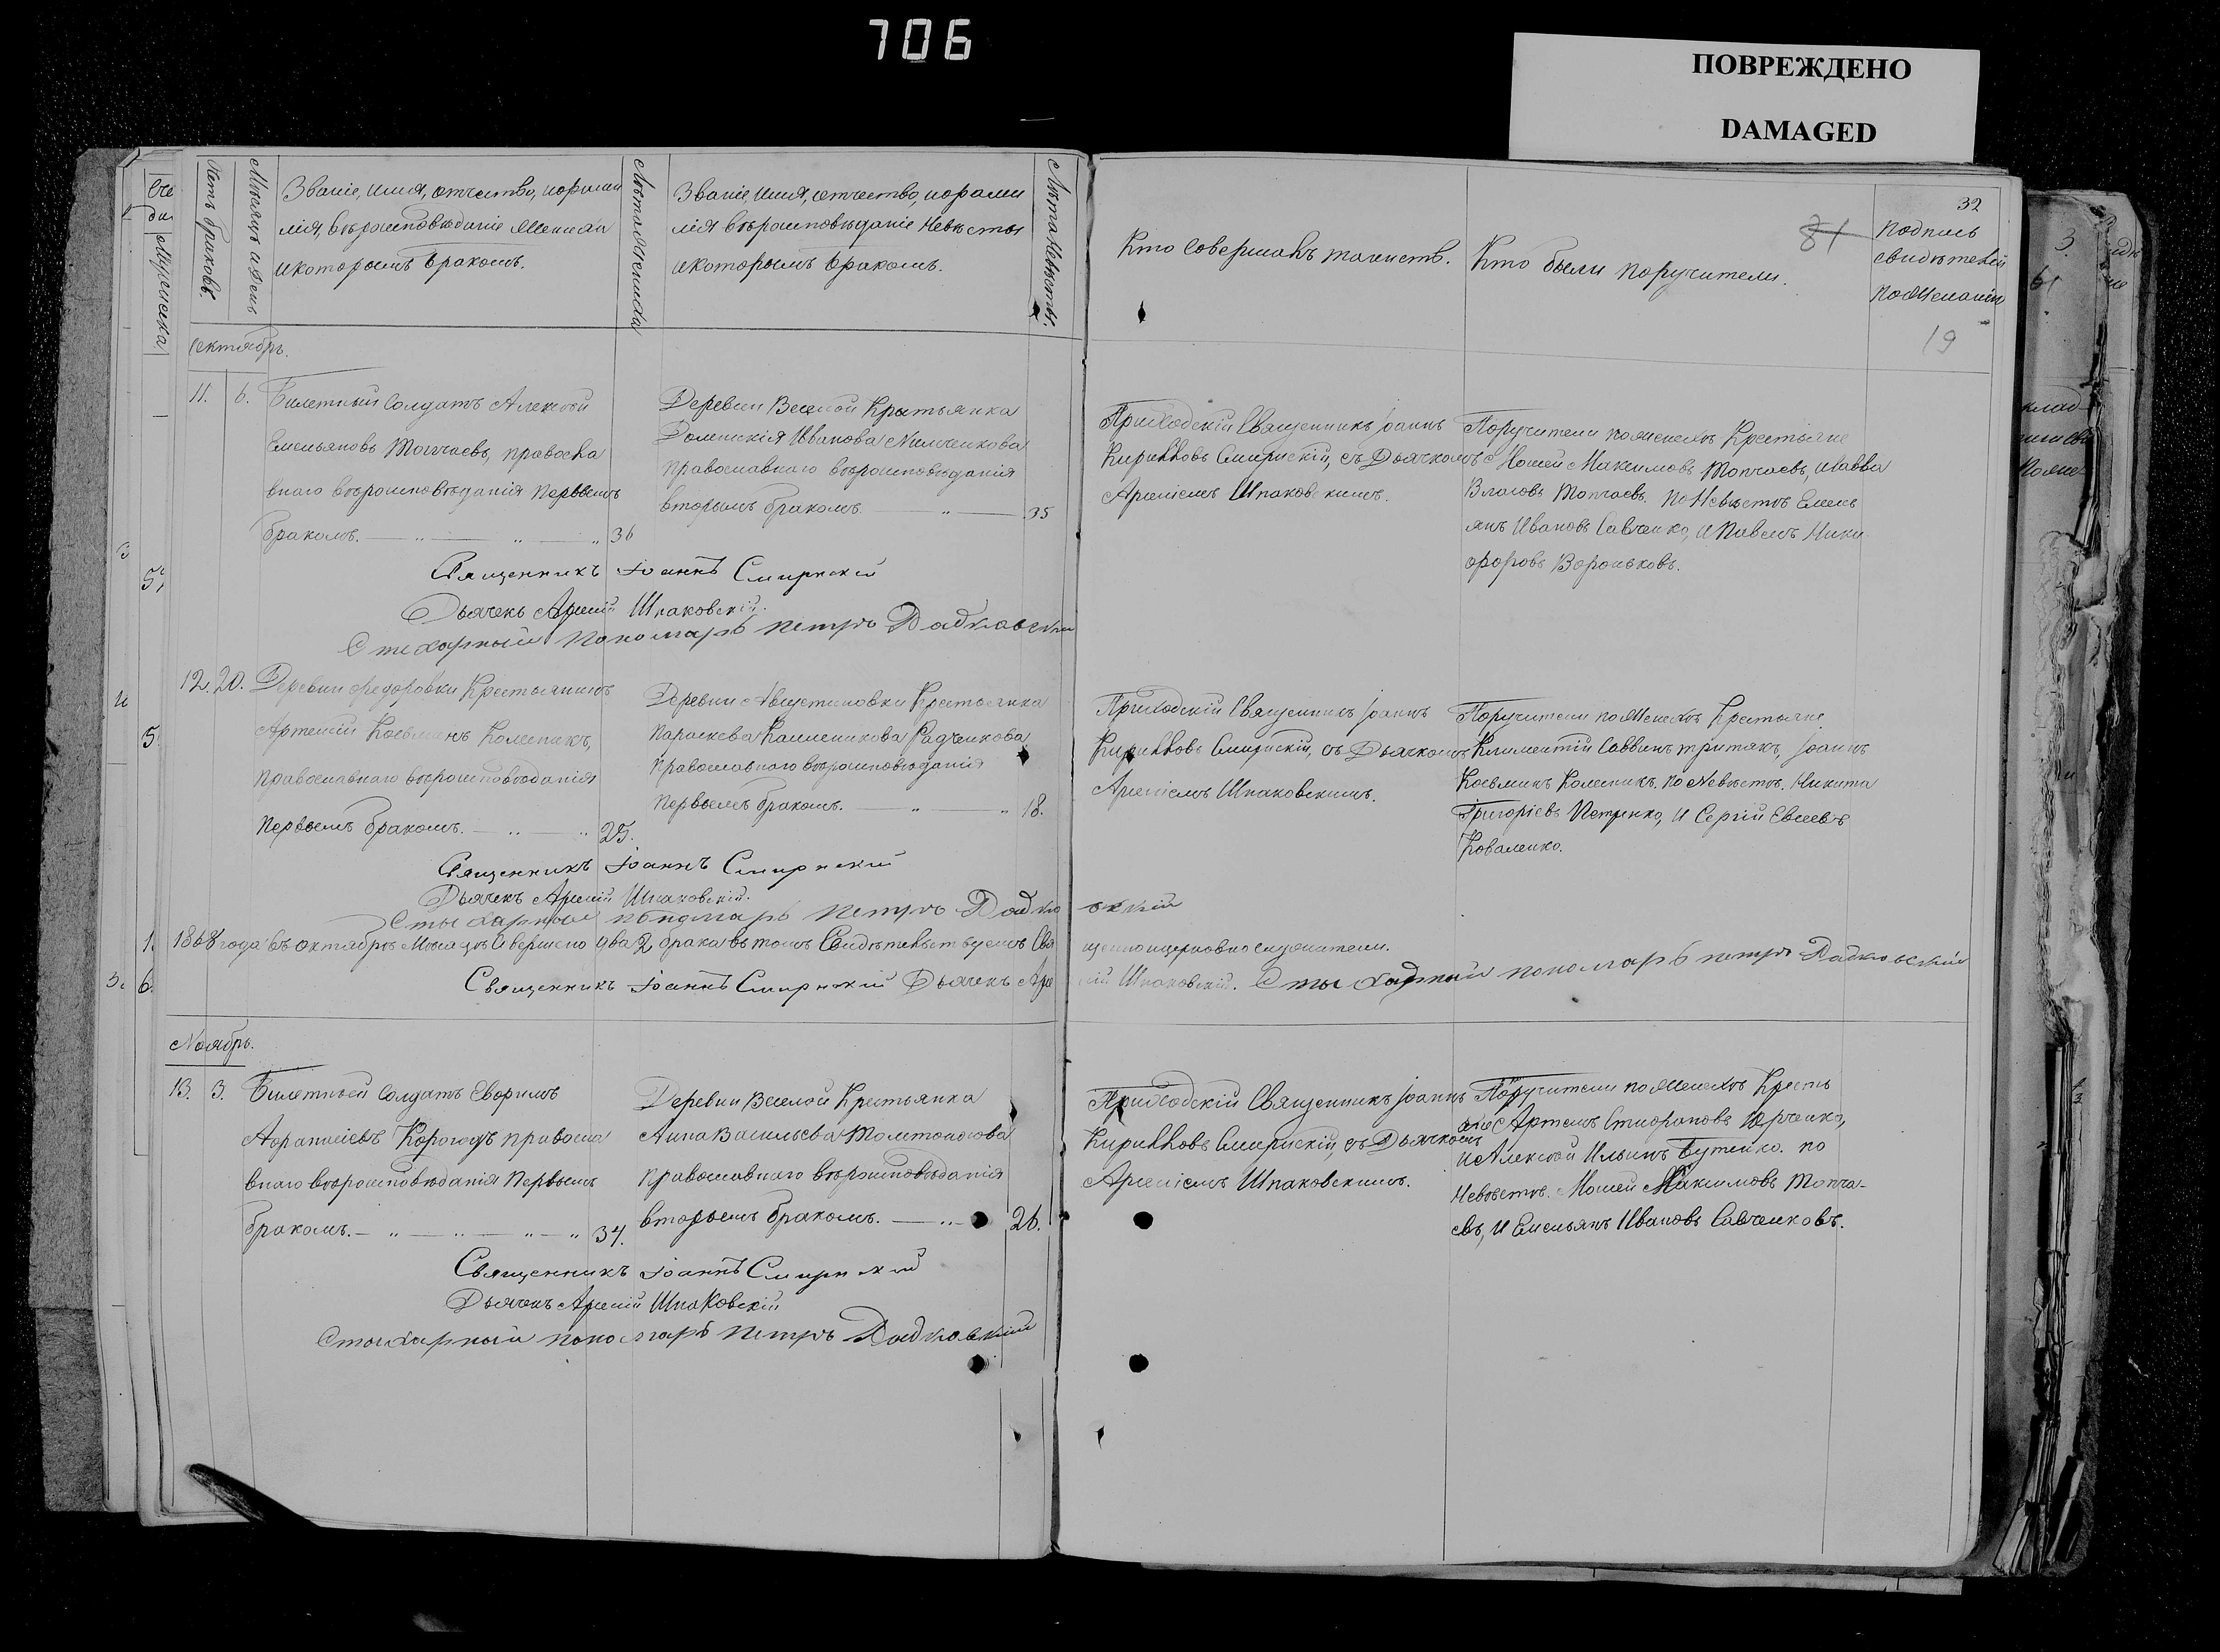 706
ПОВРЕЖДЕНО
DAMAGED
32
19
Счетъ браковъ.
Мѣсяцъ и день
Званіе, имя, отчество, и фами
лія, вѣроисповѣданіе Жениха
и которымъ бракомъ.
Лѣта Жениха
Званіе, имя, отчество, и фами
лія вѣроисповѣданіе Невѣсты
и которымъ бракомъ.
Лѣта Невѣсты.
Кто совершалъ таинств.
Кто были поручители.
Подпись
свидѣтелей
по желанію
Октябрь.
11. 6.
Билетный солдатъ Алексѣй
Емельяновъ Топчаевъ, правосла
внаго вѣроисповѣданія первымъ
бракомъ. 36
Деревни Веселой Крестьянка
Иванова
православнаго вѣроисповѣданія
вторымъ бракомъ. 35
Приходскій Священникъ Іоаннъ
Кирилловъ Смирнскій, съ Дьячкомъ
Арсеніемъ Шпаковскимъ.
Поручители по женихѣ Крестьяне
Мосей Максимовъ Топчаевъ, и Савва
Власовъ Топчаевъ. По Невѣстѣ Емель
янъ Ивановъ Савченко, и Павелъ Ники
форовъ Вороньковъ.
Священникъ Іоаннъ Смирнскій
Дьячекъ Арсеній Шпаковскій.
Стихарный пономарь Петръ Радковский
12. 20.
Деревни Федоровки Крестьянинъ
Артемій Козьминъ Колесникъ,
православнаго вѣроисповѣданія
первымъ бракомъ. 25.
Деревни Августиновки Крестьянка
Параскева Радченкова
православнаго вѣроисповѣданія
первымъ бракомъ. 18.
Приходскій Священникъ Іоаннъ
Кирилловъ Смирнскій, съ Дьячкомъ
Арсеніемъ Шпаковскимъ.
Поручители по Женихѣ Крестьяне
Климентій Саввинъ Третякъ, Іоаннъ
Козьминъ Колесникъ. По Невѣстѣ. Никита
Григоріевъ Петренко, и Сергій Евсеевъ
Коваленко.
Священникъ Іоаннъ Смирнскій
Дьячекъ Арсеній Шпаковскій.
Стыхарный пономарь Петръ Радковскій
1868 года въ октябрѣ мѣсяцѣ Совершено два 2 брака въ томъ Свидѣтельствуемъ Священноцерковнослужители.
Священникъ Іоаннъ Смирнскій Дьячекъ Арсеній Шпаковскій. Стыхарный пономарь Петръ Радковский
Ноябрь.
13. 3.
Билетный солдатъ Ефримъ
Афанасіевъ Корогодъ правосла
внаго вѣроисповѣданія первымъ
бракомъ. 34.
Деревни Веселой Крестьянка
Анна Васильева
православнаго вѣроисповѣданія
вторымъ бракомъ. 26.
Приходскій Священникъ Іоаннъ
Кирилловъ Смирнскій, съ Дьячкомъ
Арсеніемъ Шпаковскимъ.
Поручители по Женихѣ Кресть
яне Артемъ Стефановъ Юрченко,
и Алексѣй Ильинъ Бутенко. по
Невѣстѣ. Мосей Максимовъ Топча-
евъ, и Емельянъ Ивановъ Савченковъ.
Священникъ Іоаннъ Смирнскій
Дьячекъ Арсеній Шпаковскій
Стыхарный пономарь Петръ Радковский